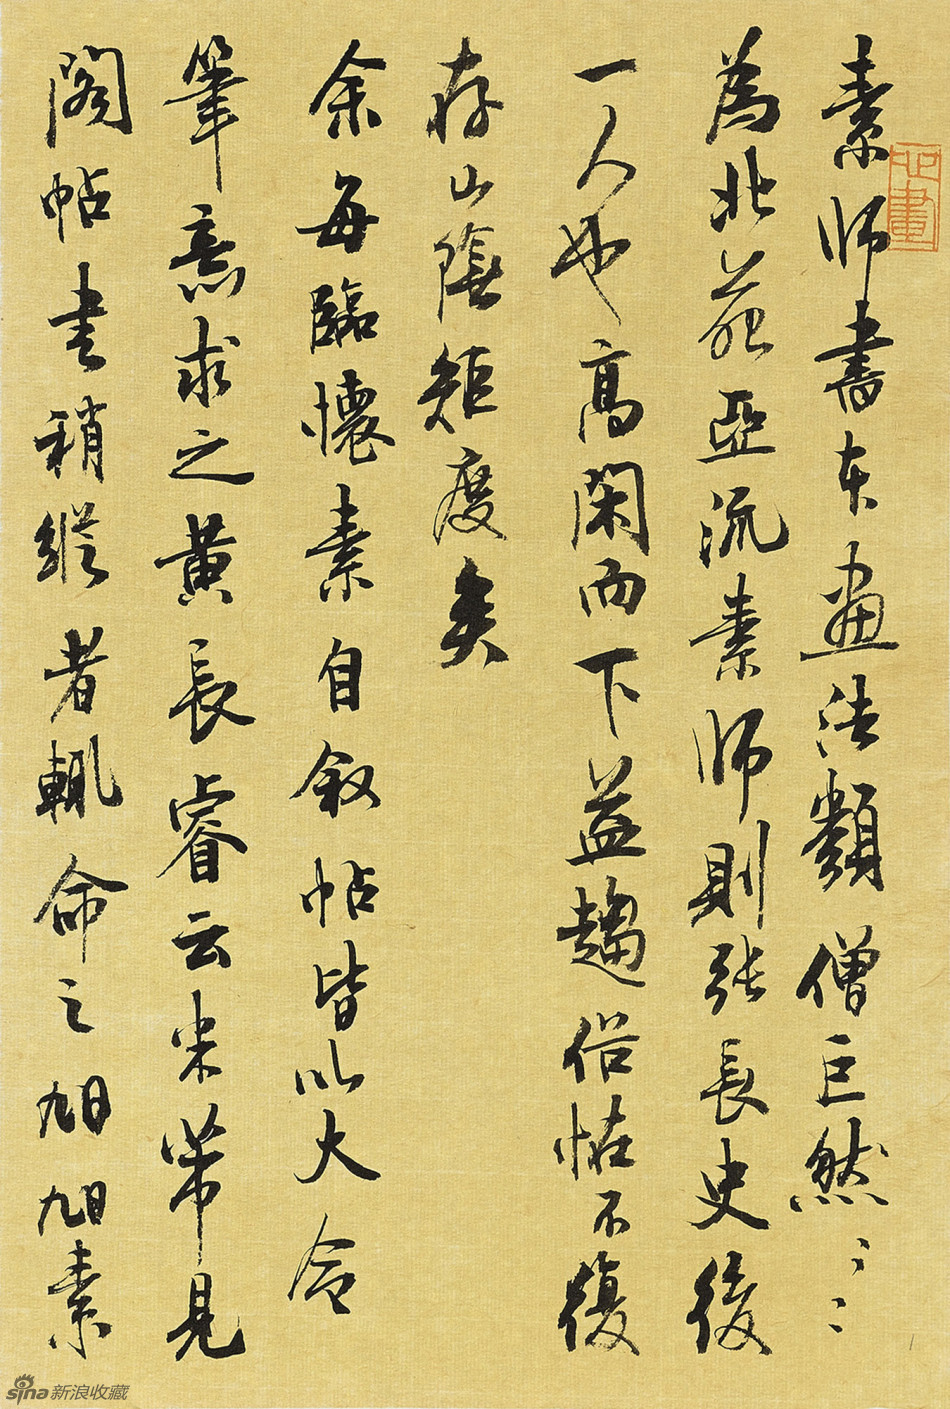 素師書本畫法類僧巨然〻〻
為北苑亞流素師則张長史後
一人也高閑而下益趨俗怪不復
存山陰矩度矣
余每臨懷素自叙帖皆以大令
筆意求之黄長睿云米芾見
閣帖書稍縱者輒命之旭旭素
心畫
sina新浪收藏